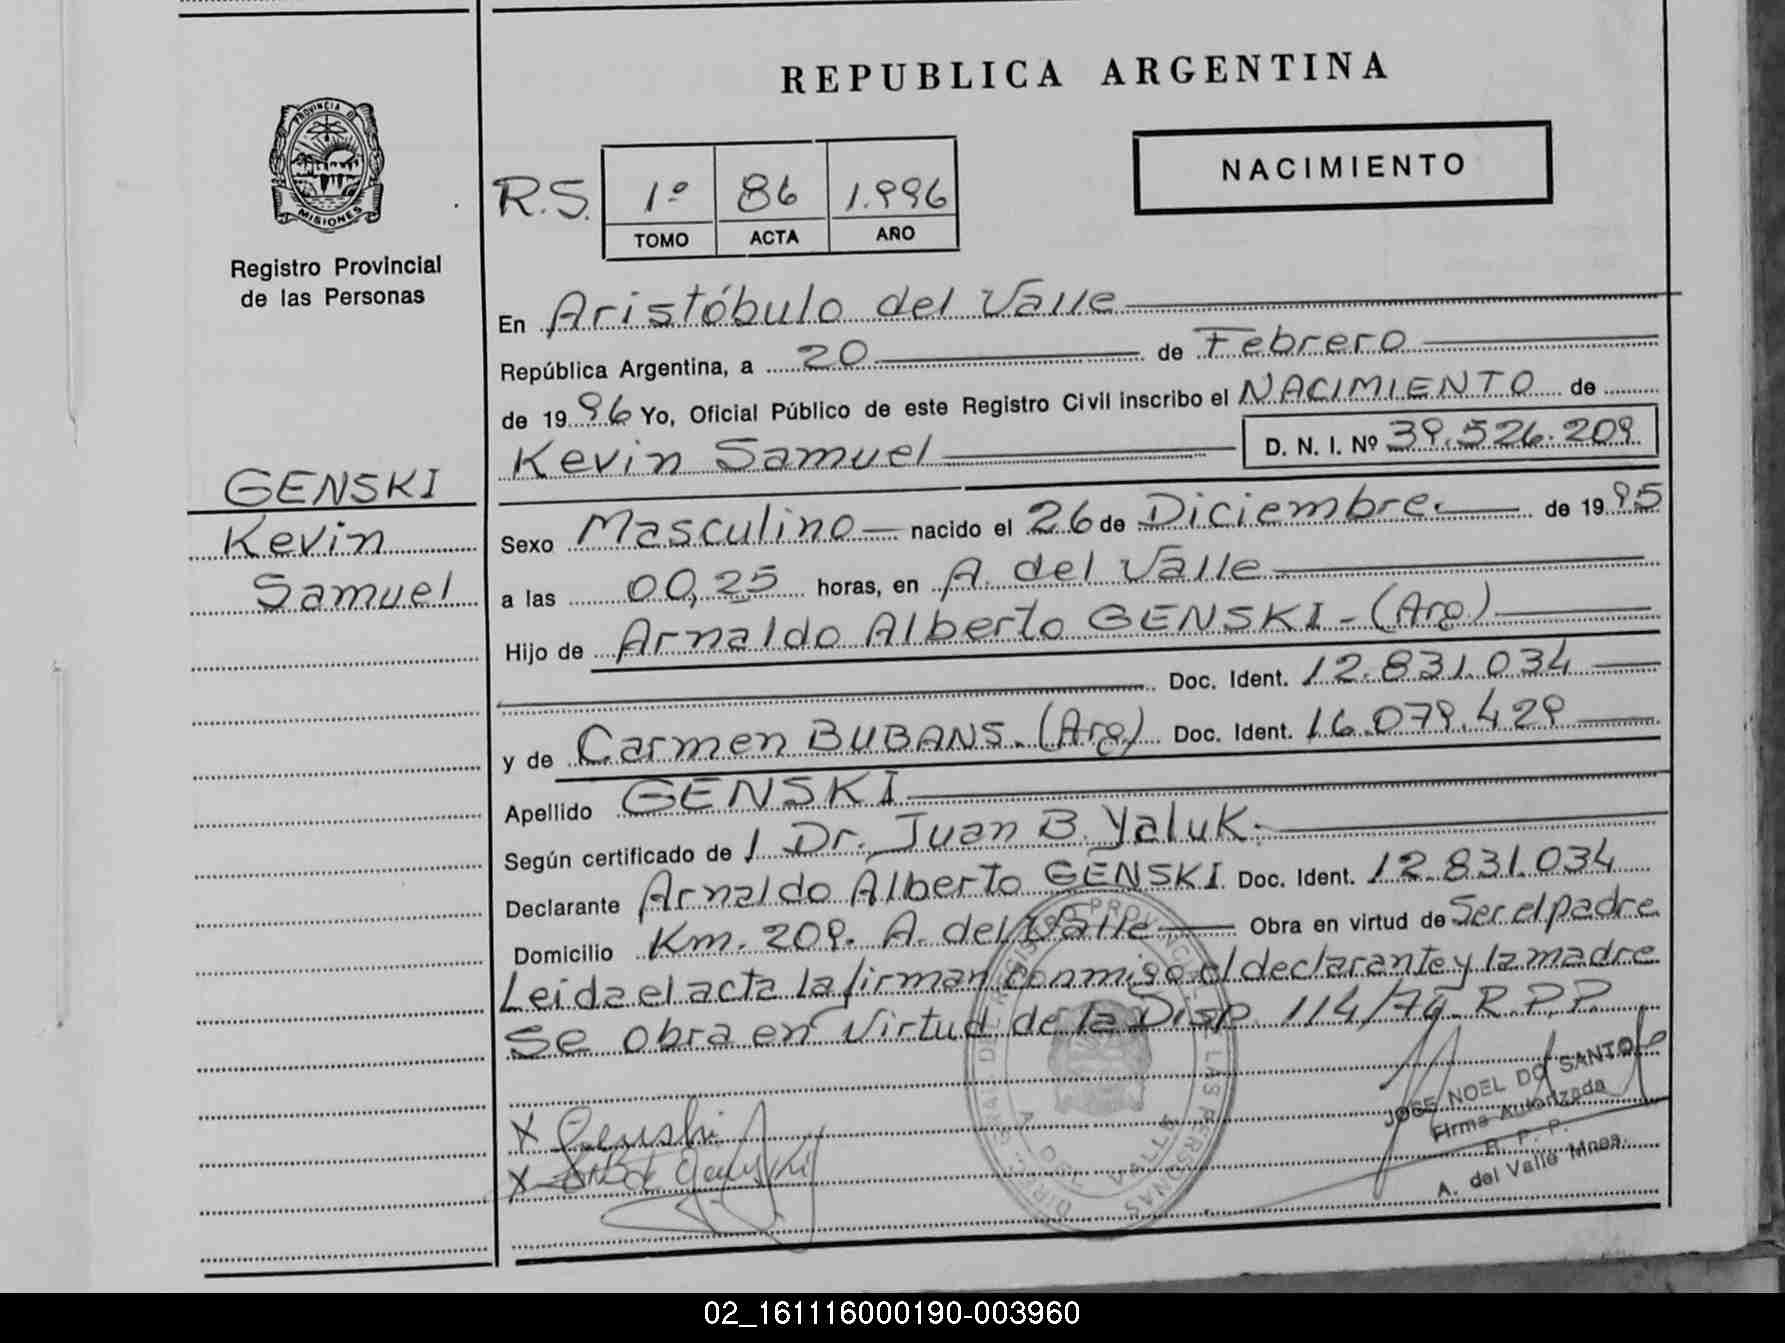 REPUBLICA ARGENTINA
PROVINCIA DE
MISIONES
Registro Provincial
de las Personas
R.S. 1º 86 1.996
TOMO ACTA AÑO
NACIMIENTO
En Aristóbulo del Valle
República Argentina, a 20 de Febrero
de 1996 Yo, Oficial Público de este Registro Civil inscribo el NACIMIENTO de
Kevin Samuel D. N. I. Nº 39.526.209
GENSKI
Kevin
Samuel
Sexo Masculino nacido el 26 de Diciembre de 1995
a las 00,25 horas, en A. del Valle
Hijo de Arnaldo Alberto GENSKI - (Arg)
Doc. Ident. 12.831.034
y de Carmen BUBANS. (Arg) Doc. Ident. 16.079.429
Apellido GENSKI
Según certificado de l Dr. Juan B. Yaluk.
Declarante Arnaldo Alberto GENSKI Doc. Ident. 12.831.034
Domicilio Km. 209. A. del Valle Obra en virtud de Ser el padre
Leida el acta la firman conmigo el declarante y la madre
Se obra en virtud de la Disp. 114/74 R.P.P.
X Genski
X
JOSE NOEL DO SANTO
Firma Autorizada
R. P. P.
A. del Valle Mnes.
02_161116000190-003960